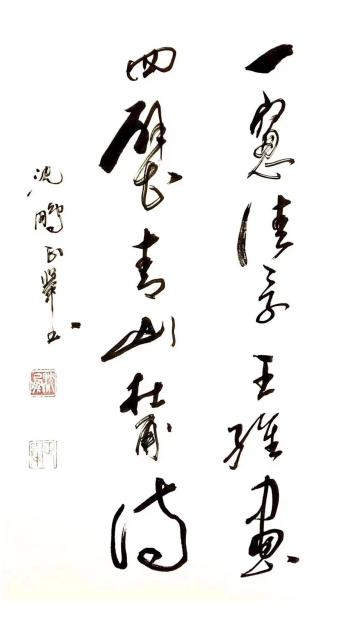 一窗佳景王維畫
四壁青山杜甫詩
沈鵬